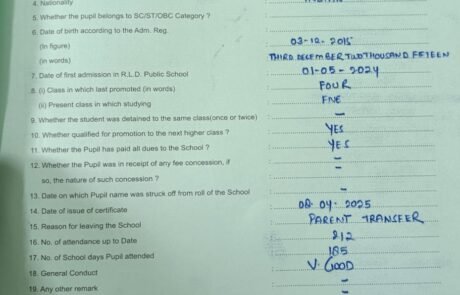 4. Nationality
5. Whether the pupil belongs to SC/ST/OBC Category ?
6. Date of birth according to the Adm. Reg.
(In figure) 03-12-2015
(in words) THIRD DECEMBER TWO THOUSAND FIFTEEN
7. Date of first admission in R.L.D. Public School 01-05-2024
8. (i) Class in which last promoted (in words) FOUR
(ii) Present class in which studying FIVE
9. Whether the student was detained to the same class(once or twice) -
10. Whether qualified for promotion to the next higher class ? YES
11. Whether the Pupil has paid all dues to the School ? YES
12. Whether the Pupil was in receipt of any fee concession, if -
so, the nature of such concession ? -
13. Date on which Pupil name was struck off from roll of the School -
14. Date of issue of certificate 08-04-2025
15. Reason for leaving the School PARENT TRANSFER
16. No. of attendance up to Date 212
17. No. of School days Pupil attended 185
18. General Conduct V. GOOD
19. Any other remark -